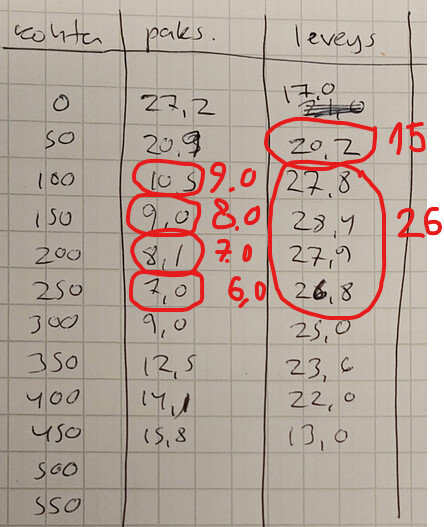 kohta paks. leveys
0 27,2 17,0
50 20,9 20,2 15
100 10,5 9.0 27,8
150 9,0 8.0 28,4 26
200 8,1 7.0 27,9
250 7,0 6,0 26,8
300 9,0 25,0
350 12,5 23,6
400 14,1 22,0
450 15,8 13,0
500
550